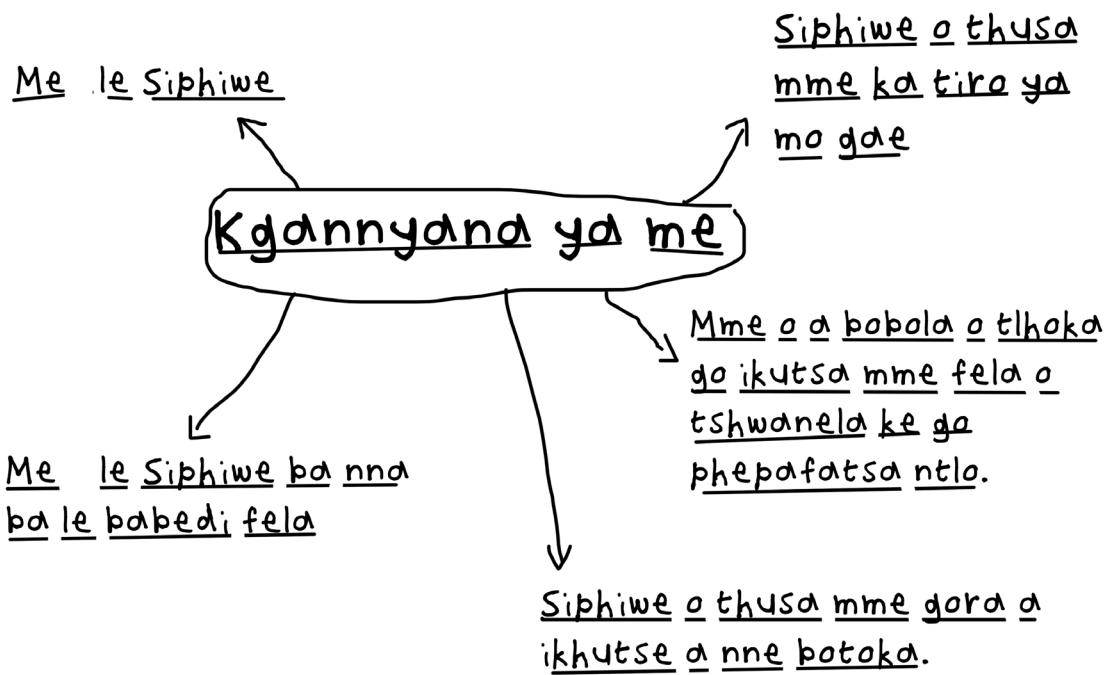 Me le Siphiwe
Siphiwe o thusa
mme ka tiro ya
mo gae
Kgannyana ya me
Mme o a bobola o tlhoka
go ikutsa mme fela o
tshwanela ke go
phepafatsa ntlo.
Me le Siphiwe ba nna
ba le babedi fela
Siphiwe o thusa mme gora a
ikhutse a nne botoka.